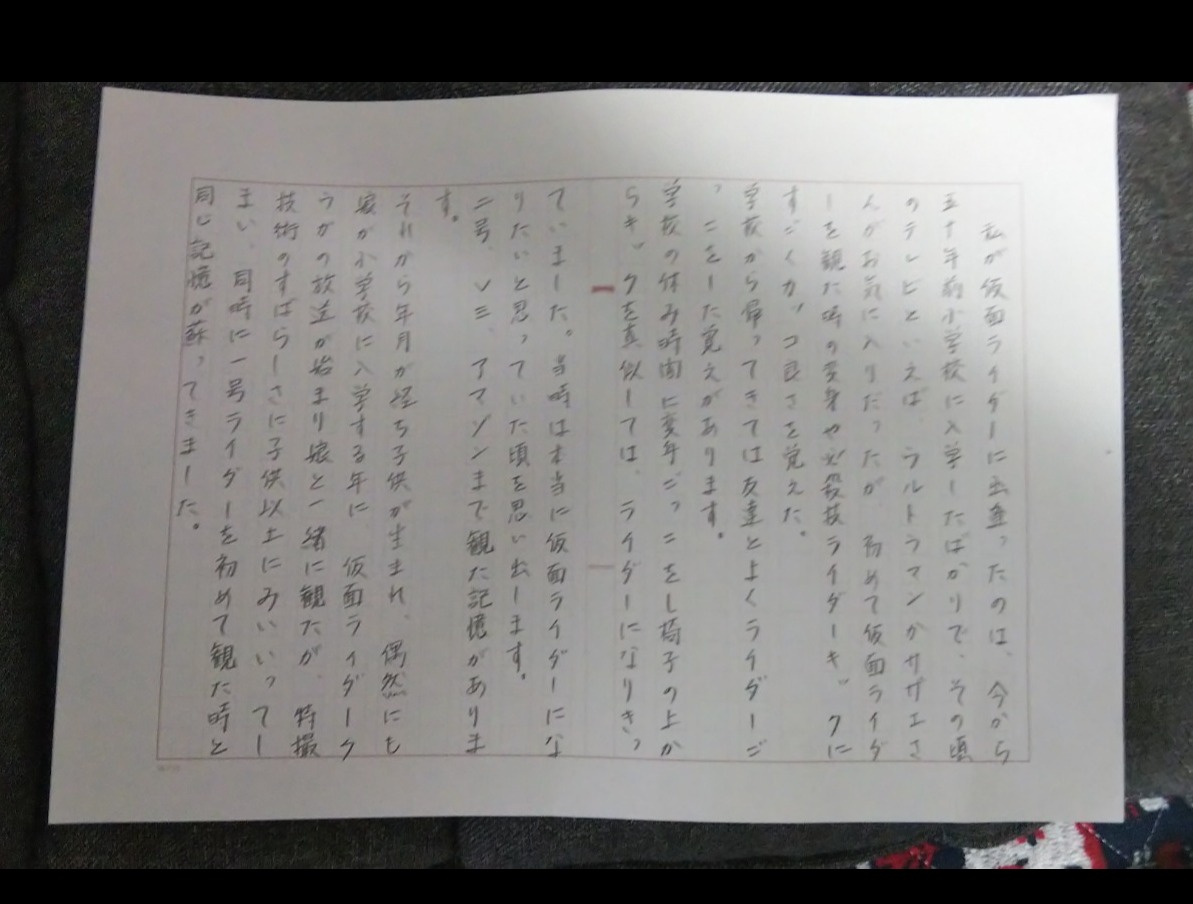 私が仮面ライダーに出逢ったのは、今から
五十年前小学校に入学したばかりで、その頃
のテレビといえば、ウルトラマンかサザエさ
んがお気に入りだったが、初めて仮面ライダ
ーを観た時の変身や必殺技ライダーキックに
すごくカッコ良さを覚えた。
学校から帰ってきては友達とよくライダーご
っこをした覚えがあります。
学校の休み時間に変身ごっこをし椅子の上か
らキックを真似しては、ライダーになりきっ
ていました。当時は本当に仮面ライダーにな
りたいと思っていた頃を思い出します。
二号、V三、アマゾンまで観た記憶がありま
す。
それから年月が経ち子供が生まれ、偶然にも
娘が小学校に入学する年に仮面ライダーク
ウガの放送が始まり娘と一緒に観たが、特撮
技術のすばらしさに子供以上にみいいってし
まい、同時に一号ライダーを初めて観た時と
同じ記憶が蘇ってきました。